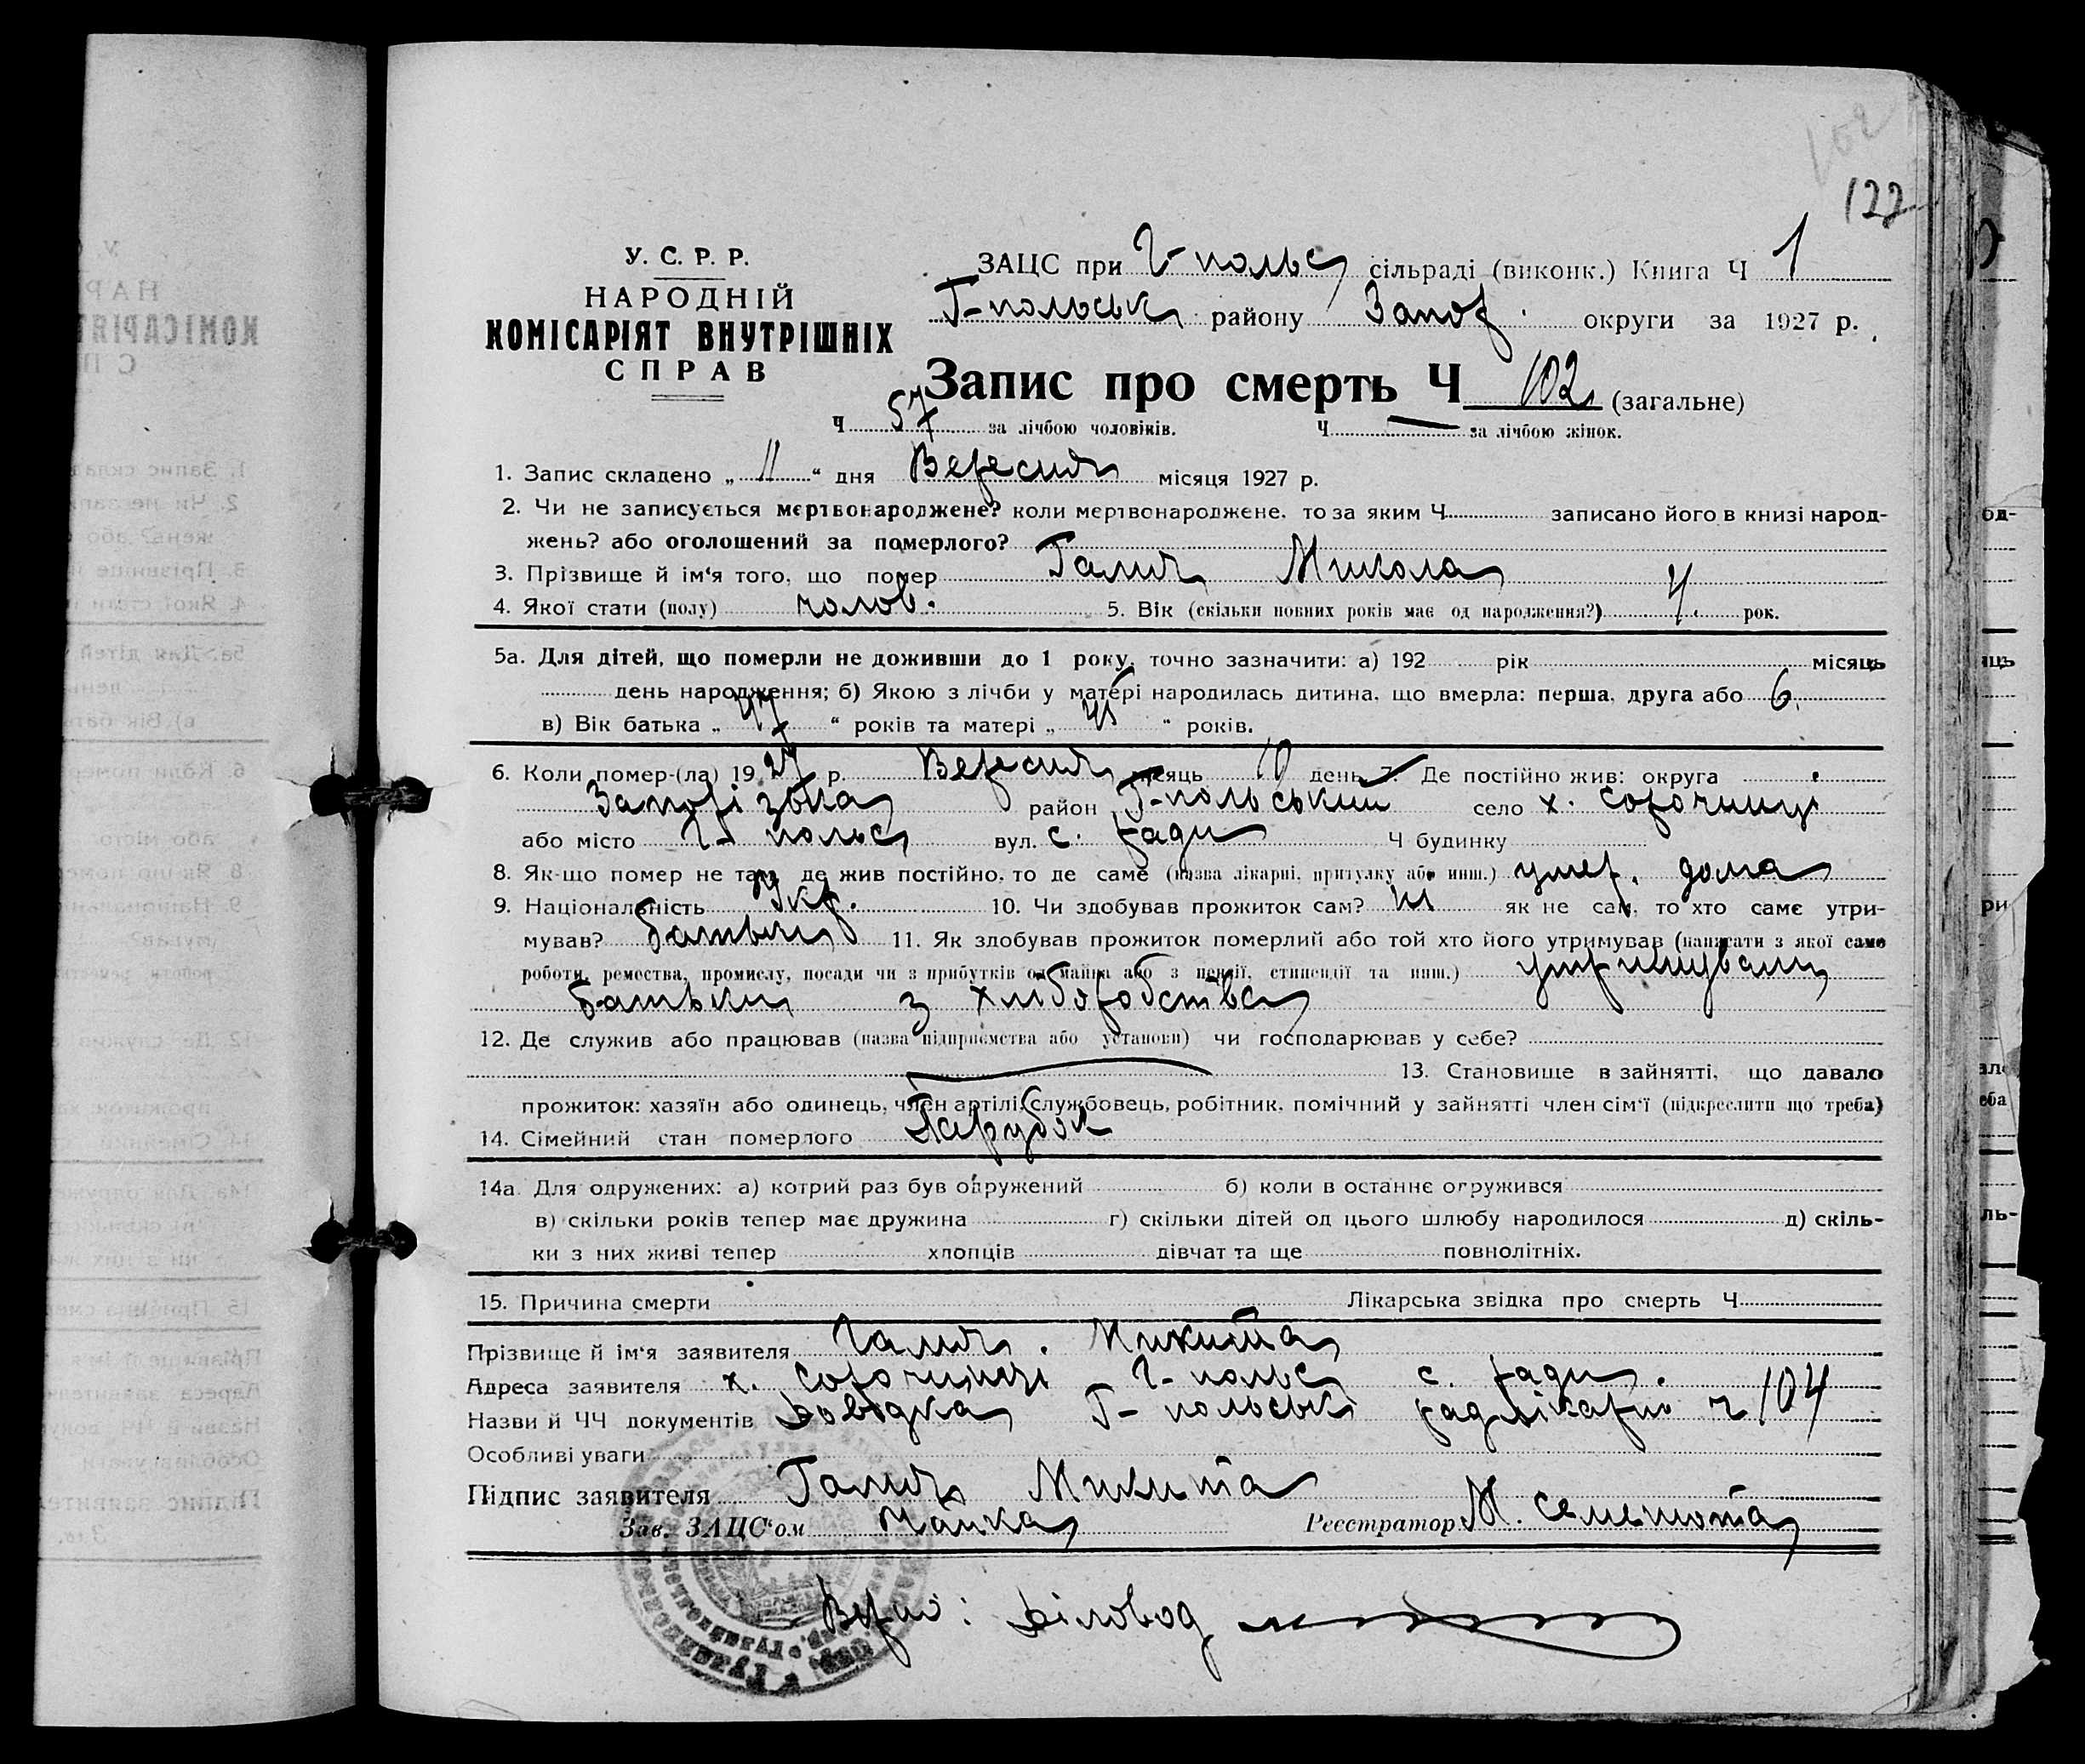 102
122
У. С. Р. Р.
НАРОДНІЙ
КОМІСАРІЯТ ВНУТРІШНІХ
СПРАВ
ЗАЦС при Г-польс сільраді (виконк.) Книга Ч 1
Г-польськ району Запор. округи за 1927 р.
Запис про смерть Ч 102 (загальне)
Ч 57 за лічбою чоловіків. Ч — за лічбою жінок.
1. Запис складено „ 11 “ дня Вересня місяця 1927 р.
2. Чи не записується мертвонароджене? коли мертвонароджене, то за яким Ч записано його в книзі народ-
жень? або оголошений за померлого?
3. Прізвище й ім‘я того, що помер Галич Микола
4. Якої стати (полу) чолов. 5. Вік (скільки повних років має од народження?) 4. рок.
5а. Для дітей, що померли не доживши до 1 року, точно зазначити: а) 192 рік місяць
день народження; б) Якою з лічби у матері народилась дитина, що вмерла: перша, друга або 6.
в) Вік батька „ 47 “ років та матері „ “ років.
6. Коли помер-(ла) 1927 р. Вересня місяць 10 день 7. Де постійно жив: округа
Запорізька район Г-польський село х. Сорочинці
або місто Г-польс вул. с. ради Ч будинку
8. Як-що помер не там, де жив постійно, то де саме (назва лікарні, притулку або инш.) умер. дома
9. Національність Укр. 10. Чи здобував прожиток сам? ні як не сам, то хто саме утри-
мував? батьки 11. Як здобував прожиток померлий або той хто його утримував (написати з якої саме
роботи, ремества, промислу, посади чи з прибутків од майна або з пенсії, стипендії та инш.) утримували
батьки з хліборобства
12. Де служив або працював (назва підприємства або установи) чи господарював у себе?
13. Становище в зайнятті, що давало
прожиток: хазяїн або одинець, член артілі, службовець, робітник, помічний у зайнятті член сім‘ї (підкреслити що треба)
14. Сімейний стан померлого Парубок
14а. Для одружених: а) котрий раз був одружений б) коли в останнє одружився
в) скільки років тепер має дружина г) скільки дітей од цього шлюбу народилося д) скіль-
ки з них живі тепер хлопців дівчат та ще повнолітніх.
15. Причина смерти Лікарська звідка про смерть Ч
Прізвище й ім‘я заявителя Галич. Микита
Адреса заявителя х. Сорочинці Г-польс с. ради.
Назви й ЧЧ документів Довідка Г-польські радлікарні ч 104
Особливі уваги
Підпис заявителя Галич Микита
Зав. ЗАЦС‘ом Чайка Реєстратор М. Семенота
Вірно: Діловод